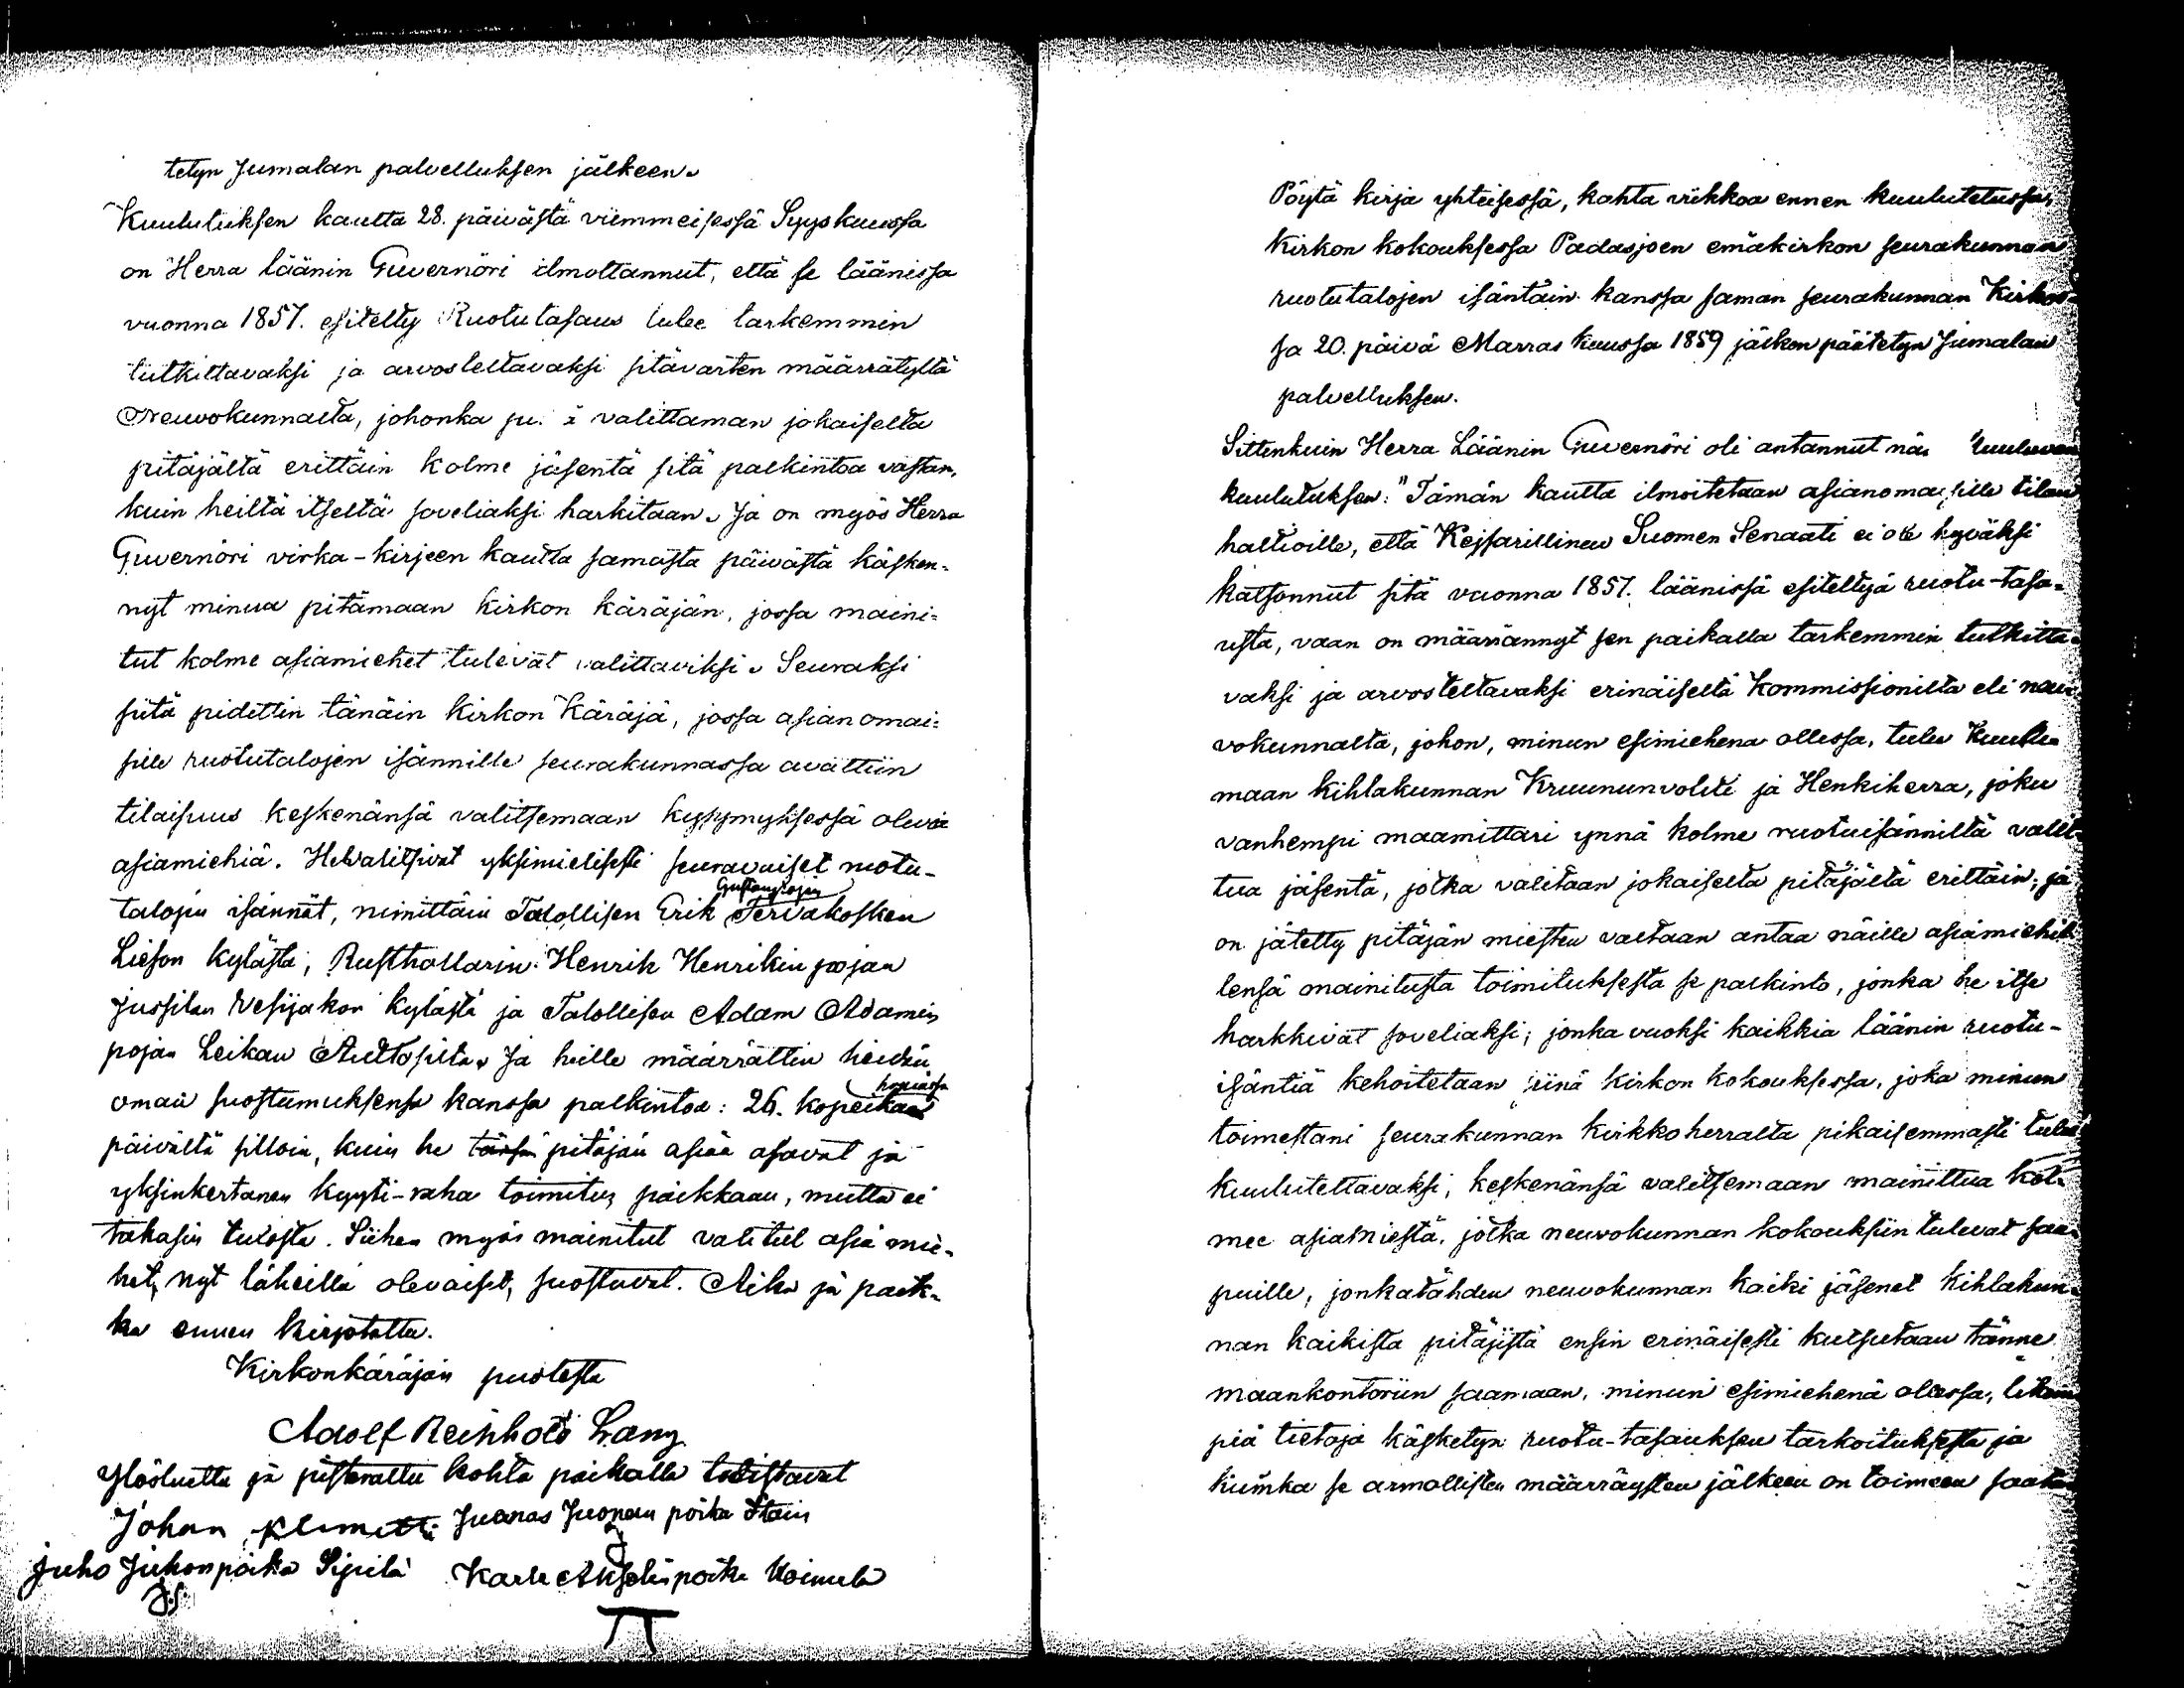 tetyn Jumalan palvelluksen jälkeen.
Kuulutuksen kautta 28. päivästä viimmeisessä Syyskuussa
on Herra läänin Guvernöri ilmottannut, että se läänissa
vuonna 1857. esitelty Ruotutasaus tulee tarkemmin
tutkittavaksi ja arvosteltavaksi sitävarten määrrätyltä
Neuvokunnalta, johonka valittaman jokaiselta
pitäjältä erittäin kolme jäsentä sitä palkintoa vastan,
kuin heiltä itseltä soveliaksi harkitaan. Ja on myös Herra
Guvernöri virka-kirjeen kautta samasta päivästä käsken-
nyt minua pitämaan kirkon käräjän, jossa maini-
tut kolme asiamiehet tulevat valittaviksi. Seuraksi
siitä pidettin tänäin kirkon Käräjä, jossa asianomai-
sille ruotutalojen isännille seurakunnassa avattiin
tilaisuus keskenänsä valitsemaan kysymyksessä olevia
asiamiehiä. He valitsivat yksimielisesti seuravaiset ruotu-
Gustavpojan
talojen isännät, nimittäin Talollisen Erik Tervakosken
Lieson kylästa, Rusthollarin Henrik Henrikin pojan
Jussilan Vesijakon kylästä ja Talollisen Adam Adamin
pojan Leikan Auttosilta. Ja heille määrrättiin heidän
hopiassa
oman suostumuksensa kanssa palkintoa: 26. kopeikaa
päivältä silloin, kuin he tässä pitäjän asiaa asavat ja
yksinkertanen kyyti-raha toimitus paikkaan, mutta ei
takasin tulosta. Siihen myös mainitut valitut asiamie-
het, nyt läheillä olevaiset, suostuvat. Aika ja paik-
ka ennen kirjotattu.
Kirkonkäräjän puolesta
Adolf Reinhold Lang
Ylösluettu ja justerattu kohta paikalla todistavat
Johan Klimetti Juanas Juonan poika Stain
Juho Juhonpoika Sipilä Karle Akselin poika Uoimila
J.S.
Pöytä kirja yhteisessä, kahta viikkoa ennen kuulutetussa,
Kirkon kokouksessa Padasjoen emäkirkon seurakunnan
ruotutalojen isäntäin kanssa saman seurakunnan Kirkos-
sa 20. päivä Marras kuussa 1859 jälken päätetyn Jumalan
palvelluksen.
Sittenkuin Herra Läänin Guvernöri oli antannut näin kuuluvan
kuulutuksen: "Tämän kautta ilmoitetaan asianomaisille tilan
haltioille, että Keisarillinen Suomen Senaati ei ole hyväksi
katsonnut sitä vuonna 1857. läänissä esiteltyä ruotu-tasa-
usta, vaan on määrännyt sen paikalla tarkemmin tutkitta-
vaksi ja arvosteltavaksi erinäiseltä Kommissionilta eli neu-
vokunnalta, johon, minun esimiehena ollessa, tulee kuulu-
maan kihlakunnan Kruununvouti ja Henkiherra, joku
vanhempi maamittari ynnä kolme ruotuisänniltä valit-
tua jäsentä, jotka valitaan jokaiselta pitäjältä erittäin; ja
on jätetty pitäjän miesten valtaan antaa näille asiamiehil-
lensä mainitusta toimituksesta se palkinto, jonka he itse
harkkivat soveliaksi; jonka vuoksi kaikkia läänin ruotu-
isäntiä kehoitetaan siinä kirkon kokouksessa, joka minun
toimestani seurakunnan kirkkoherralta pikaisemmasti tulee
kuulutettavaksi, keskenänsä valitsemaan mainittua kol-
mee asiamiestä, jotka neuvokunnan kokouksiin tulevat saa-
puille, jonkatähden neuvokunnan kaiki jäsenet kihlakun-
nan kaikista pitäjistä ensin erinäisesti kutsutaan tänne
maankontoriin saamaan, minun esimiehenä ollessa, likem-
piä tietoja käsketyn ruotu-tasauksen tarkoituksesta ja
kuinka se armollisten määrräysten jälkeen on toimeen saata-